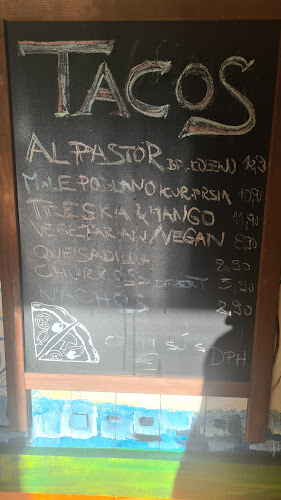 TACOS
AL PASTOR BR. KOLENO
MOLE POBLANO KUR. PRSIA 10,90
TRESKA & MANGO 11,90
VEGETARIAN/VEGAN 8,90
QUESADILLA 8,90
CHURROS DEZERT 5,90
NACHOS 8,90
SÚ S
€ DPH